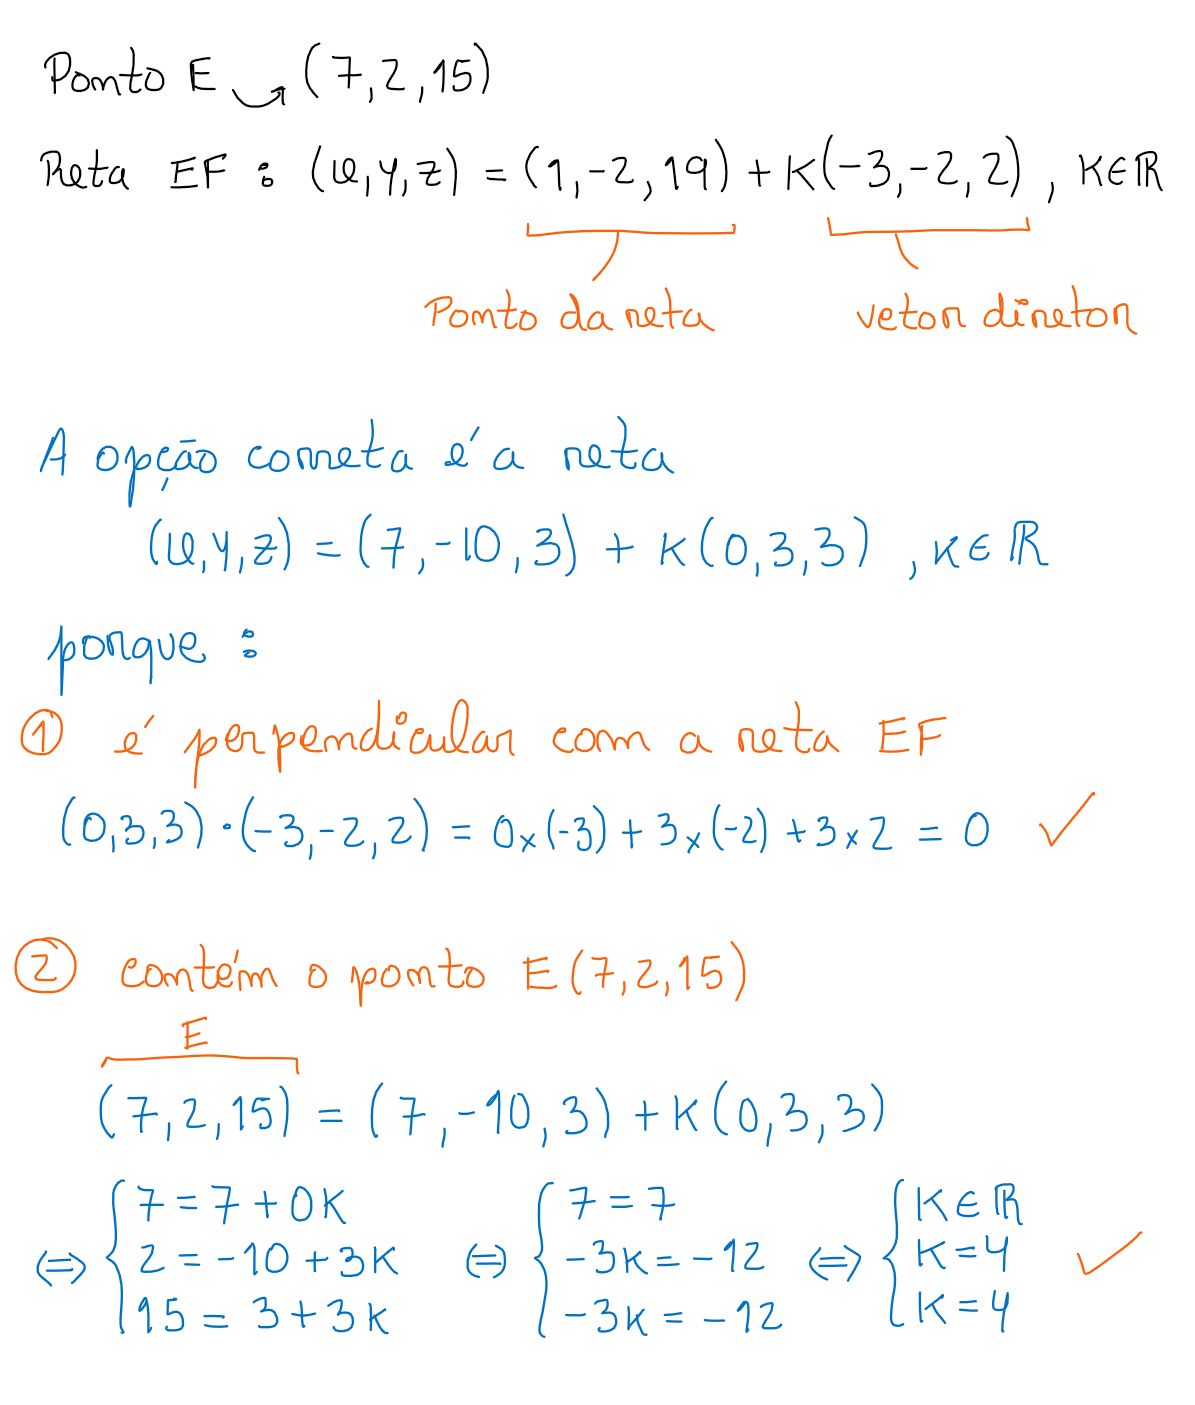 Ponto E → (7,2,15)
Reta EF : (x,y,z) = (1,-2,19) + K(-3,-2,2) , K∈ℝ
Ponto da reta vetor diretor
A opção correta é a reta
(x,y,z) = (7,-10,3) + K(0,3,3) , K∈ℝ
porque :
① é perpendicular com a reta EF
(0,3,3)·(-3,-2,2) = 0×(-3) + 3×(-2) + 3×2 = 0 ✓
② contém o ponto E(7,2,15)
E
(7,2,15) = (7,-10,3) + K(0,3,3)
7 = 7 + 0K 7 = 7 K∈ℝ
⇔ { 2 = -10 + 3K ⇔ { -3K = -12 ⇔ { K = 4 ✓
15 = 3 + 3K -3K = -12 K = 4